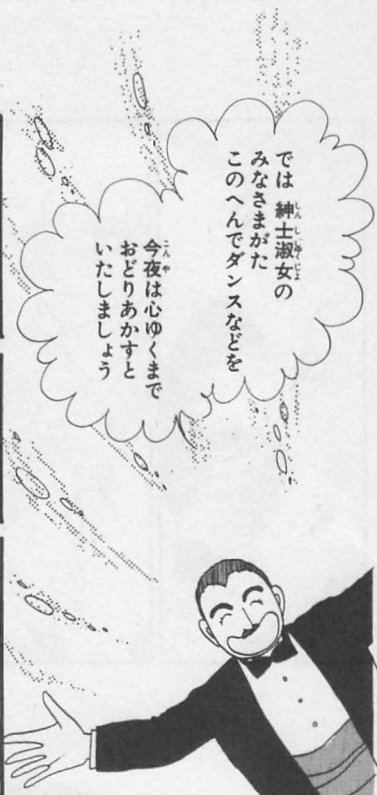 では 紳士淑女の
みなさまがた
このへんでダンスなどを
今夜は心ゆくまで
おどりあかすと
いたしましょう